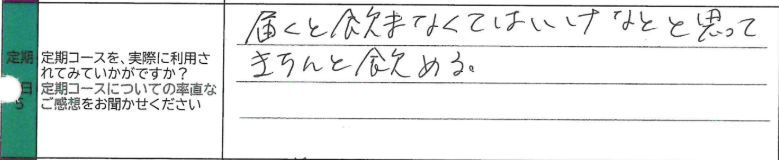 届くと飲まなくてはいけなとと思って
きちんと飲める。
定期
定期コースを、実際に利用さ
れてみていかがですか？
定期コースについての率直な
ご感想をお聞かせください
日
5